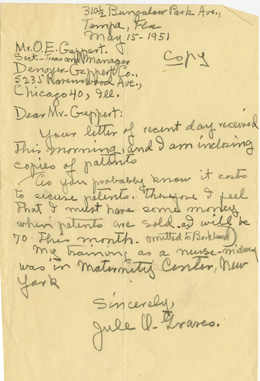 310½ Bungalow Park Ave.,
Tampa, Fla
May 15-1951
Mr. O.E. Geppert.
Copy
Sect-Treas and Manager
Denoyer-Geppert Co.,
5235 Ravenswood Ave.,
Chicago 40, Ill.
Dear Mr. Geppert:
Your letter of recent day received
this morning, and I am inclosing
copies of patents
As you probably know it costs
to secure patents. Therefore I feel
that I must have some money
when patents are sold. I will be
70 this month. (omitted to)
My training as a nurse-midwife
was in Maternity Center, New
York
Sincerely,
Jule O. Graves.